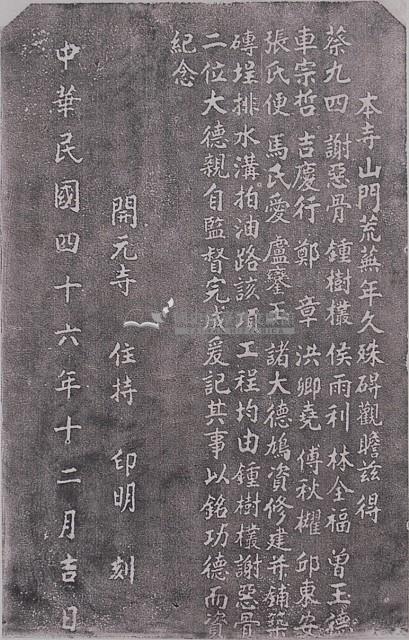 本寺山門荒蕪年久殊碍觀瞻茲得
蔡九四 謝惡骨 鍾樹欉 侯雨利 林全福 曾王德
車宗哲 吉慶行 鄭章 洪卿堯 傅秋櫂 邱東安
張氏便 馬氏愛 盧搴玉 諸大德鳩資修建并鋪築
磚埕排水溝拍油路該項工程均由鍾樹欉謝惡骨
二位大德親自監督完成爰記其事以銘功德而資
紀念
開元寺 住持 印明 刻
中華民國四十六年十二月吉日